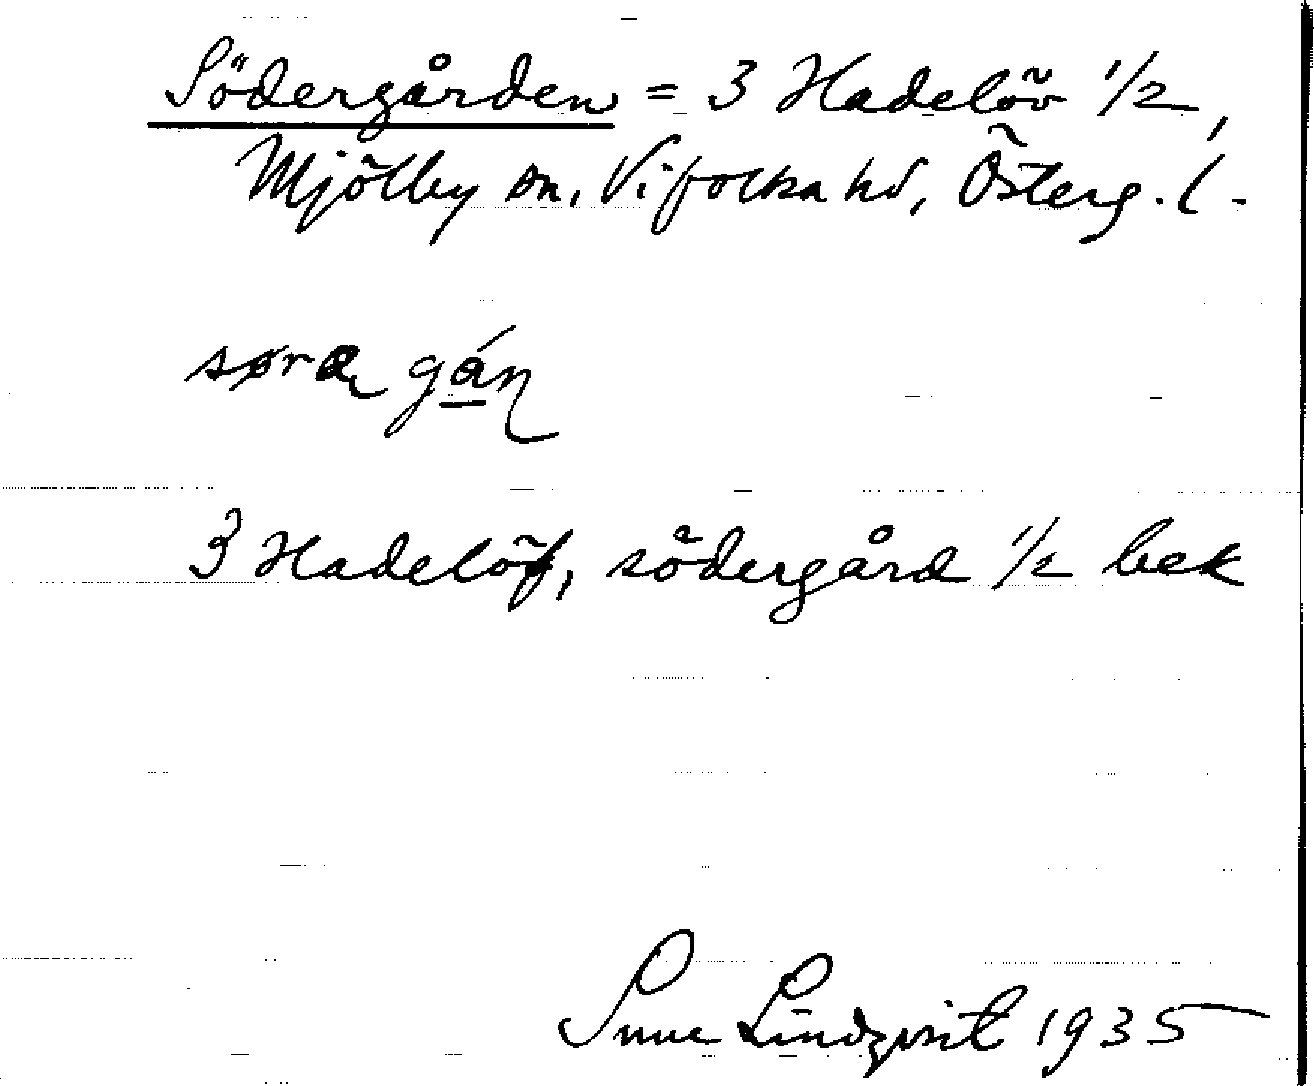 Södergården = 3 Hadelöv 1/2,
Mjölby sn, Vifolka hd, Österg. l.
søra gán
3 Hadelöf, södergård 1/2 bek
Sune Lindqvist 1935